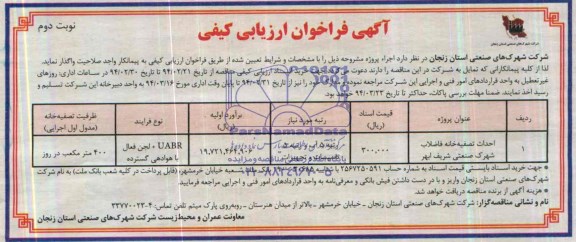 نوبت دوم
آگهی فراخوان ارزیابی کیفی
شرکت شهرک‌های صنعتی استان زنجان در نظر دارد اجراء پروژه مشروحه ذیل را با مشخصات و شرایط تعیین شده از طریق فراخوان ارزیابی کیفی به پیمانکار واجد صلاحیت واگذار نماید.
لذا از کلیه پیمانکارانی که تمایل به شرکت در این مناقصه را دارند دعوت می‌گردد جهت خرید اسناد ارزیابی کیفی مناقصه از تاریخ ۹۴/۰۲/۲۱ تا تاریخ ۹۴/۰۲/۳۰ در ساعات اداری روزهای
غیرتعطیل به واحد قراردادهای امور فنی و اجرایی این شرکت مراجعه نموده و
را نیز از تاریخ تا پایان وقت اداری مورخ ۹۴/۰۳/۱۶ به واحد دبیرخانه این شرکت تسلیم و
رسید اخذ نمایند. ضمنا مهلت بررسی پاکات، حداکثر تا تاریخ ۹۴/۰۳/۲۳ خواهد بود.
ردیف
عنوان پروژه
قیمت اسناد (ریال)
رتبه مورد نیاز
برآورد اولیه (ریال)
نوع فرایند
ظرفیت تصفیه‌خانه (مدول اول اجرایی)
۱
احداث تصفیه‌خانه فاضلاب شهرک صنعتی شریف ابهر
۳۰۰,۰۰۰
UABR + لجن فعال با هوادهی گسترده
۴۰۰ متر مکعب در روز
* جهت خرید اسناد بایستی قیمت اسناد به شماره حساب ۲۵۶۷۲۵۰۵۹۱ با شناسه
شعبه خیابان خرمشهر، (قابل پرداخت در کلیه شعب بانک ملت) به نام شرکت
شهرک‌های صنعتی استان زنجان واریز و با در دست داشتن فیش بانکی و معرفی‌نامه به واحد قراردادهای امور فنی و اجرایی مراجعه فرمایید.
* هزینه آگهی از برنده مناقصه دریافت خواهد شد.
نام و نشانی مناقصه‌گزار: شرکت شهرک‌های صنعتی استان زنجان - خیابان خرمشهر - بالاتر از میدان هنرستان - روبه‌روی پارک میثم تلفن تماس: ۴-۳۳۷۷۰۰۲۳
معاونت عمران و محیط‌زیست شرکت شهرک‌های صنعتی استان زنجان
ParsNamadData